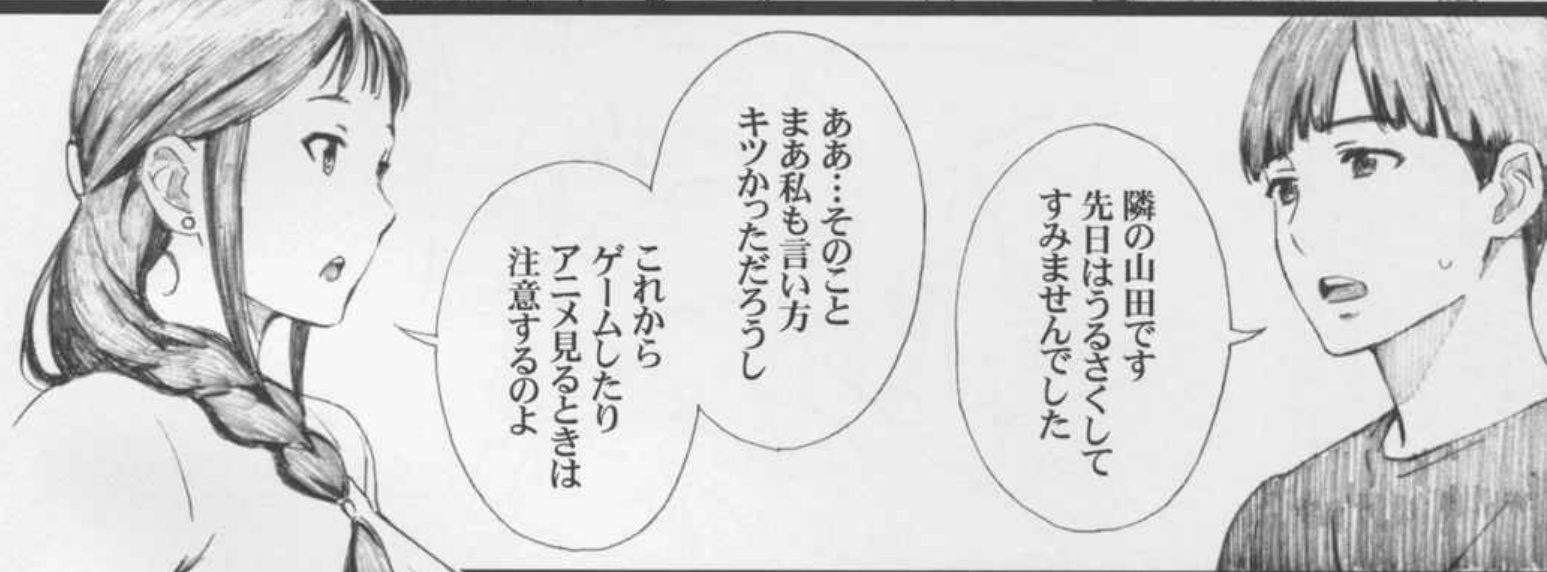 隣の山田です
先日はうるさくして
すみませんでした
ああ…そのこと
まあ私も言い方
キツかっただろうし
これから
ゲームしたり
アニメ見るときは
注意するのよ